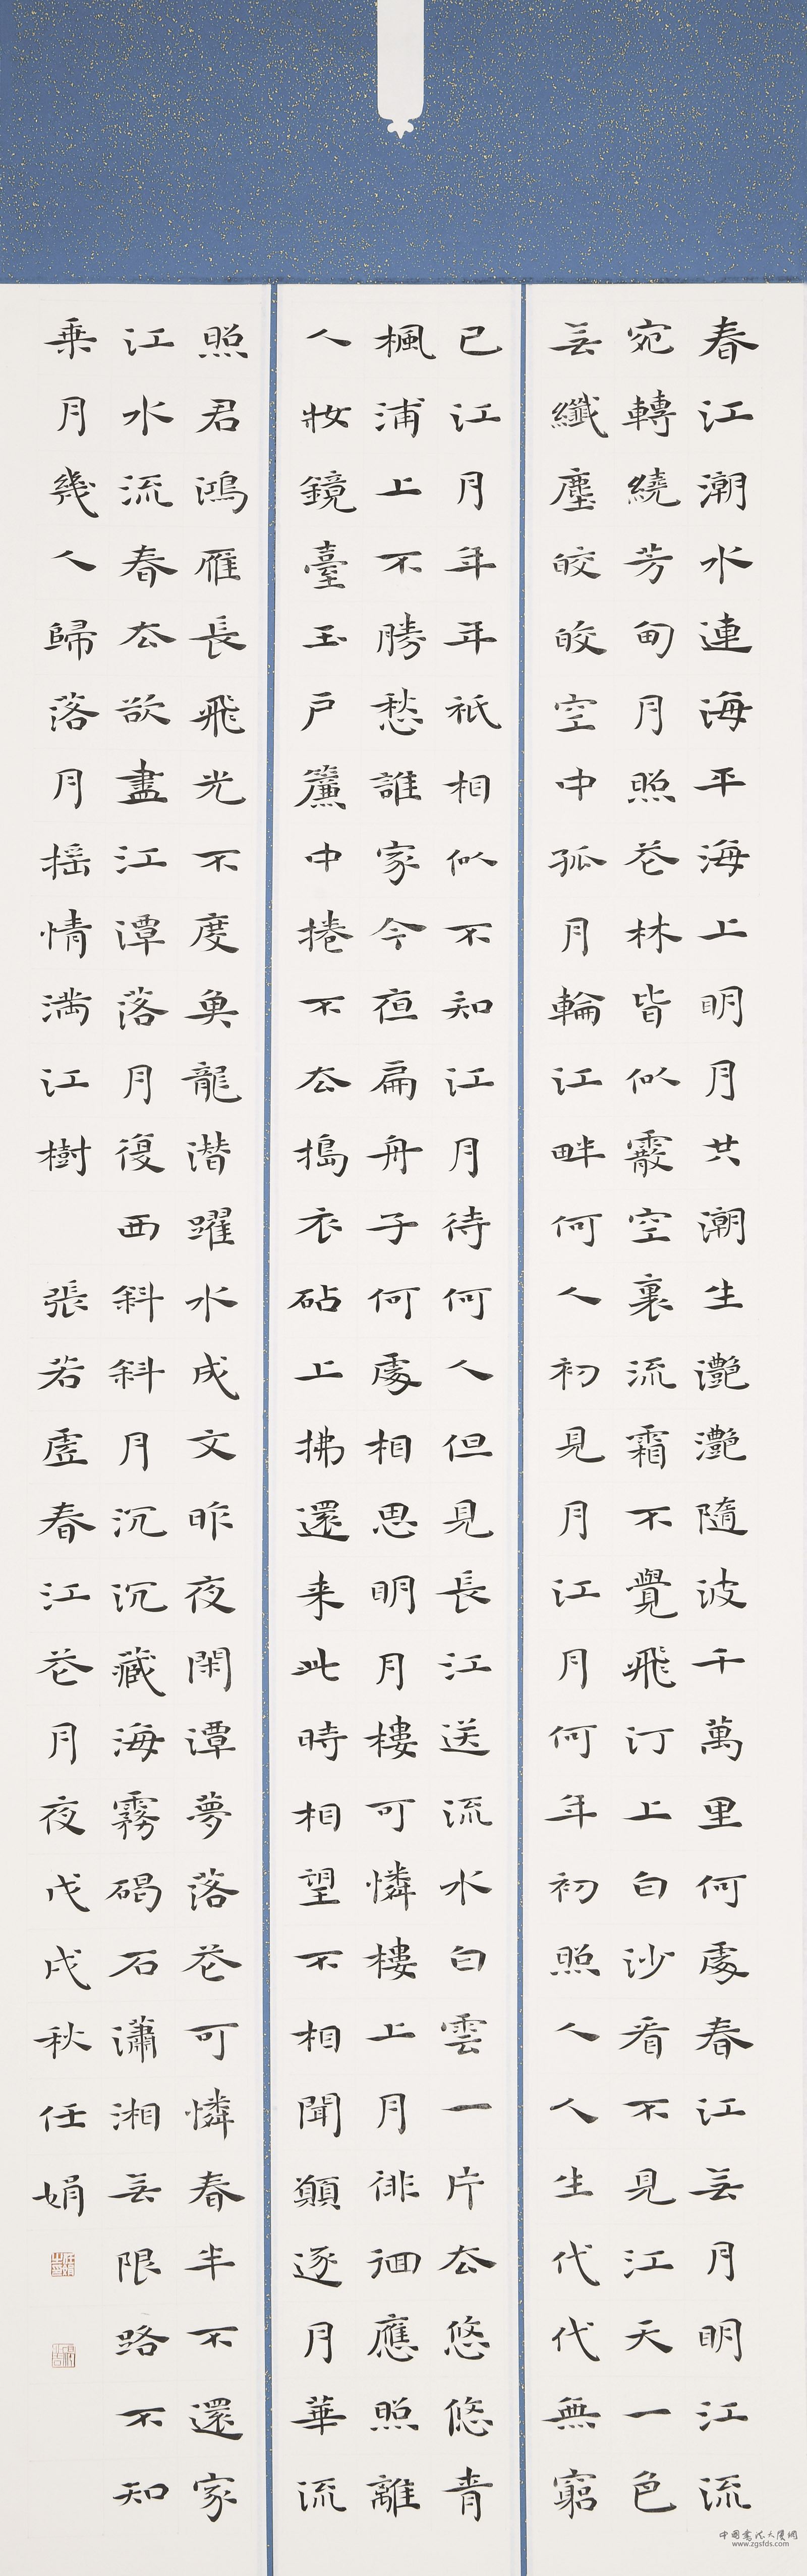 春江潮水連海平海上明月共潮生灧灧隨波千萬里何處春江无月明江流
宛轉繞芳甸月照花林皆似霰空裏流霜不覺飛汀上白沙看不見江天一色
无纖塵皎皎空中孤月輪江畔何人初見月江月何年初照人人生代代無窮
已江月年年祇相似不知江月待何人但見長江送流水白雲一片去悠悠青
楓浦上不勝愁誰家今夜扁舟子何處相思明月樓可憐樓上月徘徊應照離
人妝鏡臺玉戶簾中捲不去搗衣砧上拂還来此時相望不相聞願逐月華流
照君鴻雁長飛光不度魚龍潛躍水成文昨夜閑潭夢落花可憐春半不還家
江水流春去欲盡江潭落月復西斜斜月沉沉藏海霧碣石瀟湘无限路不知
乘月幾人歸落月摇情満江樹 張若虛春江花月夜戊戌秋任娟
www.zgsfds.com